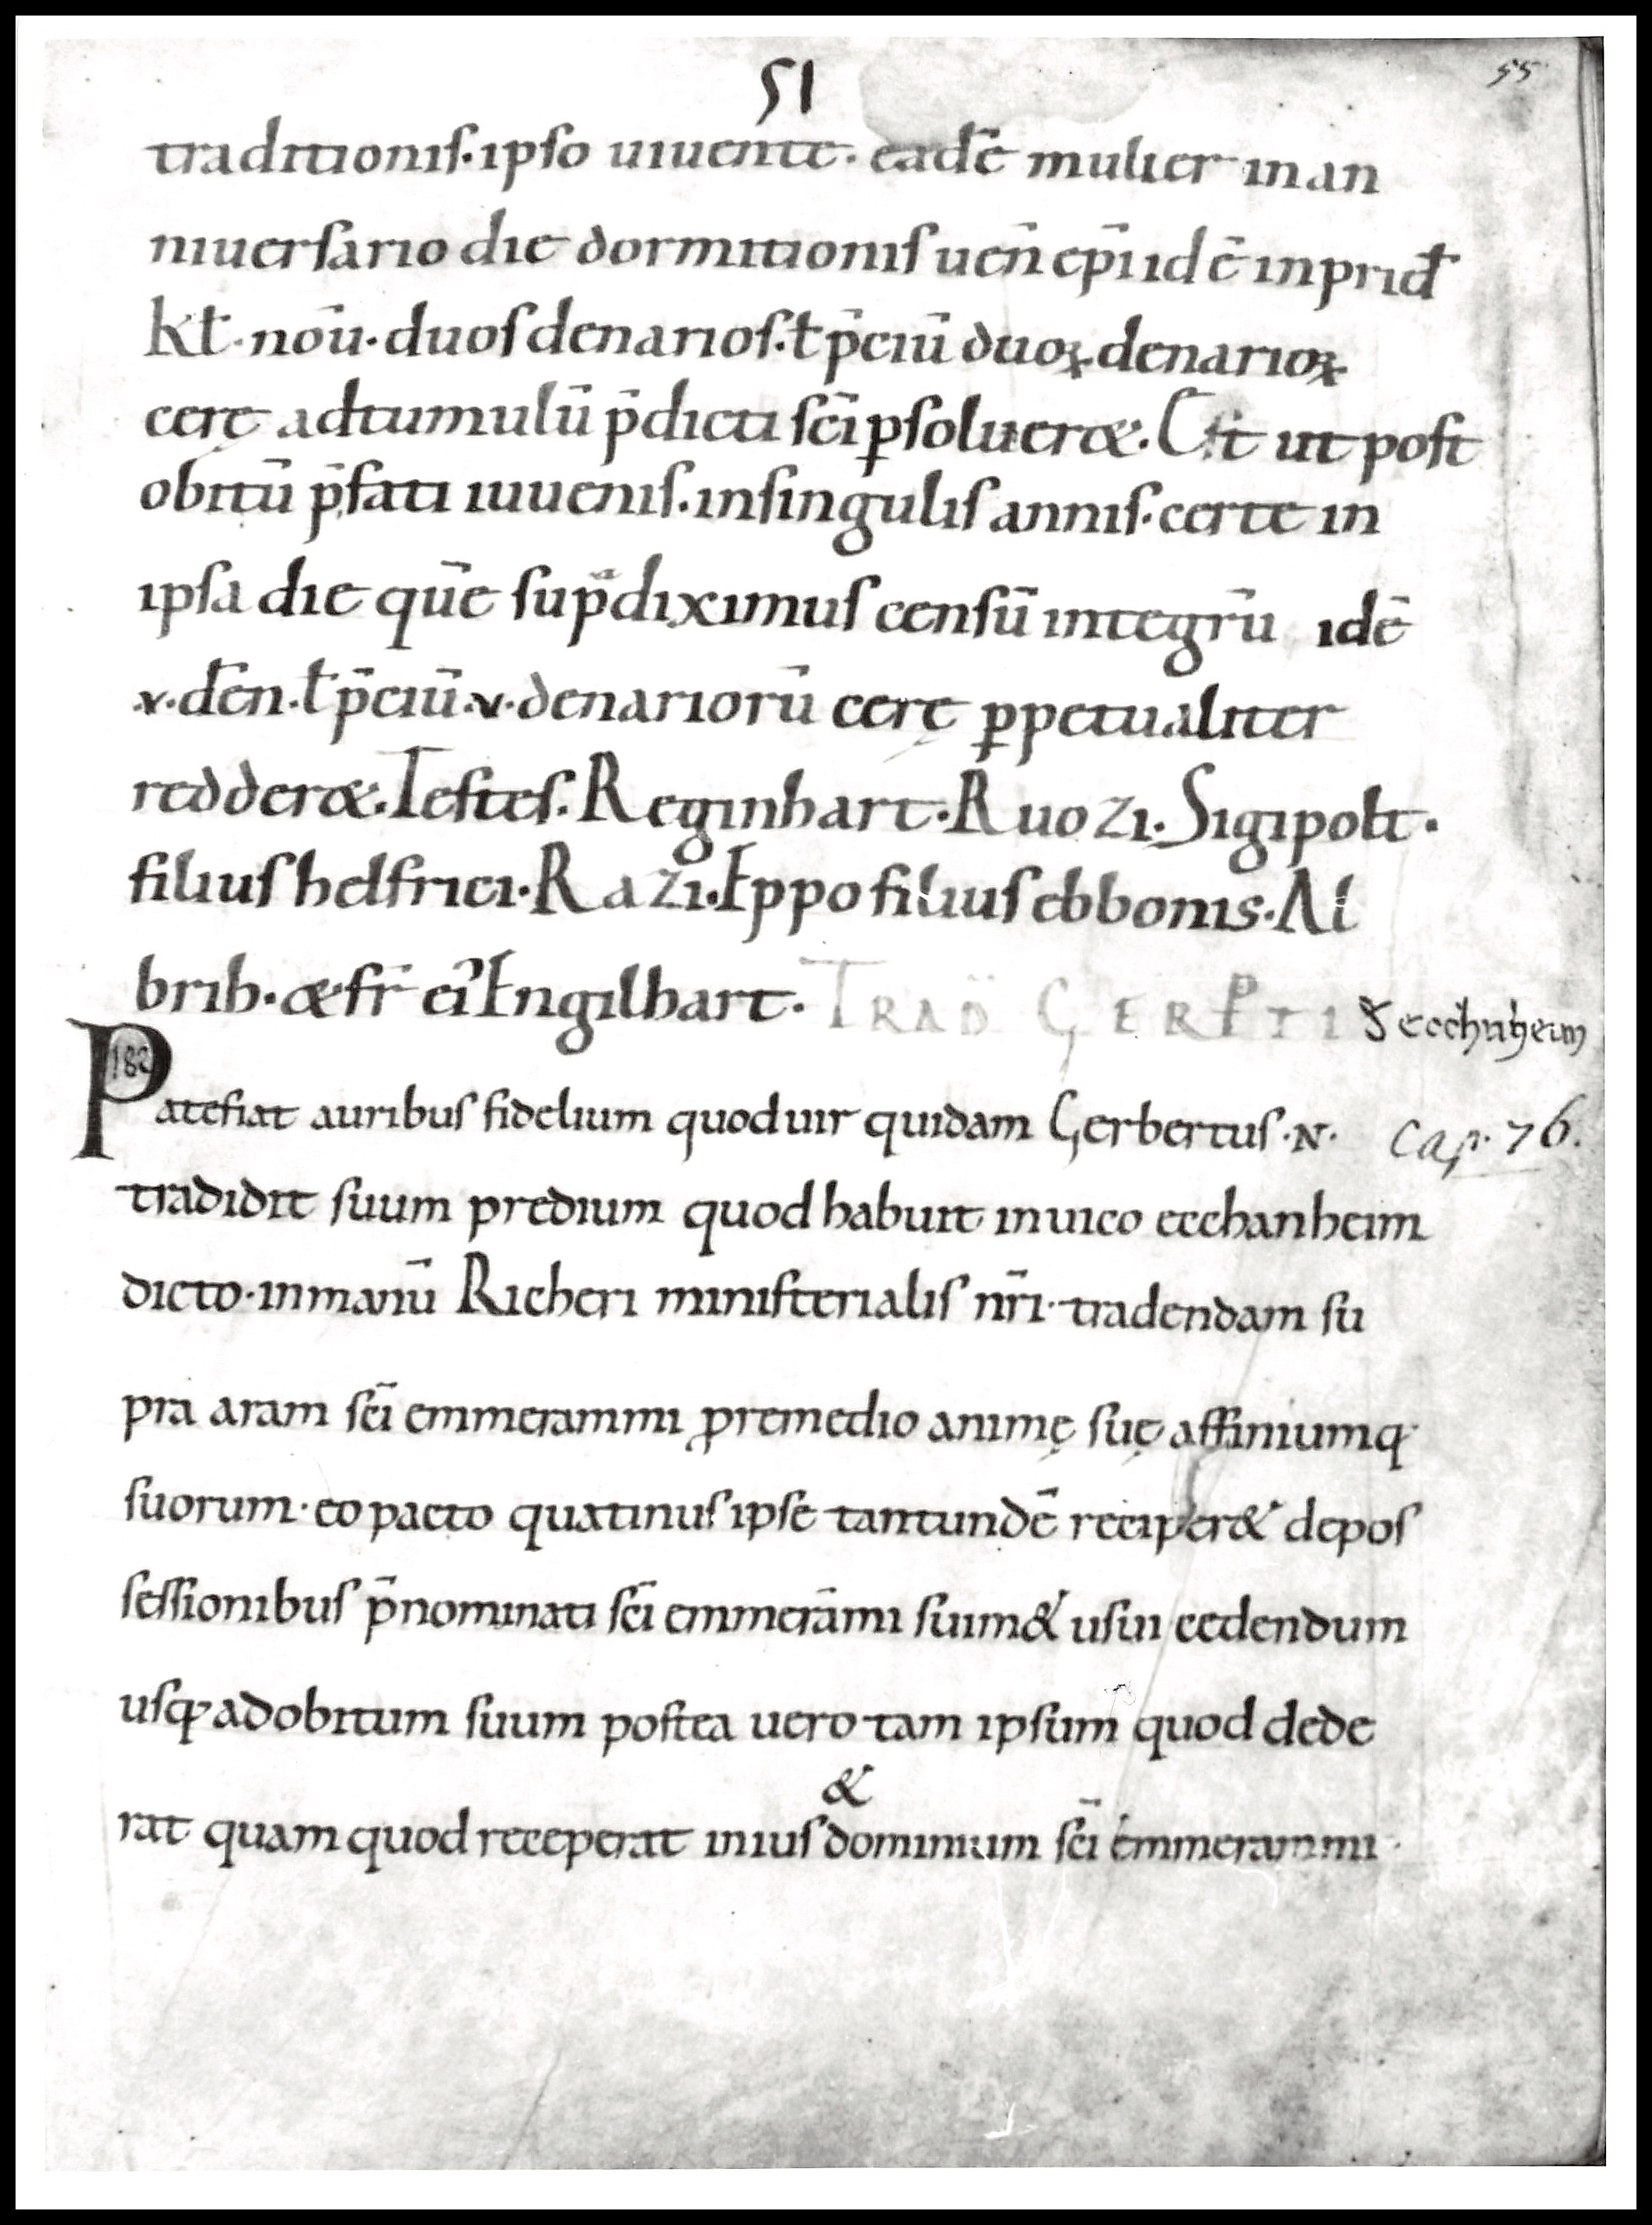 51
55
traditionis. ipso uiuente. eadē mulier in an
niuersario die dormitionis ueñ ep̄i idē in prid̄
kł. nou̅. duos denarios. ł p̄ciū duoꝝ denarioꝝ
cerę ad tumulū p̄dicti sc̄i ꝑsolueræ. Est ut post
obitū p̄fati iuuenis. in singulis annis. certe in
ipsa die quē sup̄diximus censū integrū idē
.v. den̄. ł p̄ciū .v. denariorū cerę ꝑpetualiter
redderæ. Testes. Reginhart. Ruozi. Sigipolt.
filius helfrici. Razi. Eppo filius ebbonis. Al
brih. & fr̄ ei᾿ Engilhart. TRAD GERPTI
Patefiat auribus fidelium quod uir quidam Gerbertus .N.
182
Cap. 76.
tradidit suum predium quod habuit in uico ecchanheim
dicto. in manū Richeri ministerialis nr̄i. tradendam su
pra aram sc̄i emmerammi ꝓ remedio animę suę affiniumq;
suorum. eo pacto quatinus ipse tantundē reciper& de pos
sessionibus p̄nominati sc̄i emmerāmi suim& usui cedendum
usq; ad obitum suum postea uero tam ipsum quod dede
&
rat quam quod receperat in ius dominium sc̄i emmerammi.